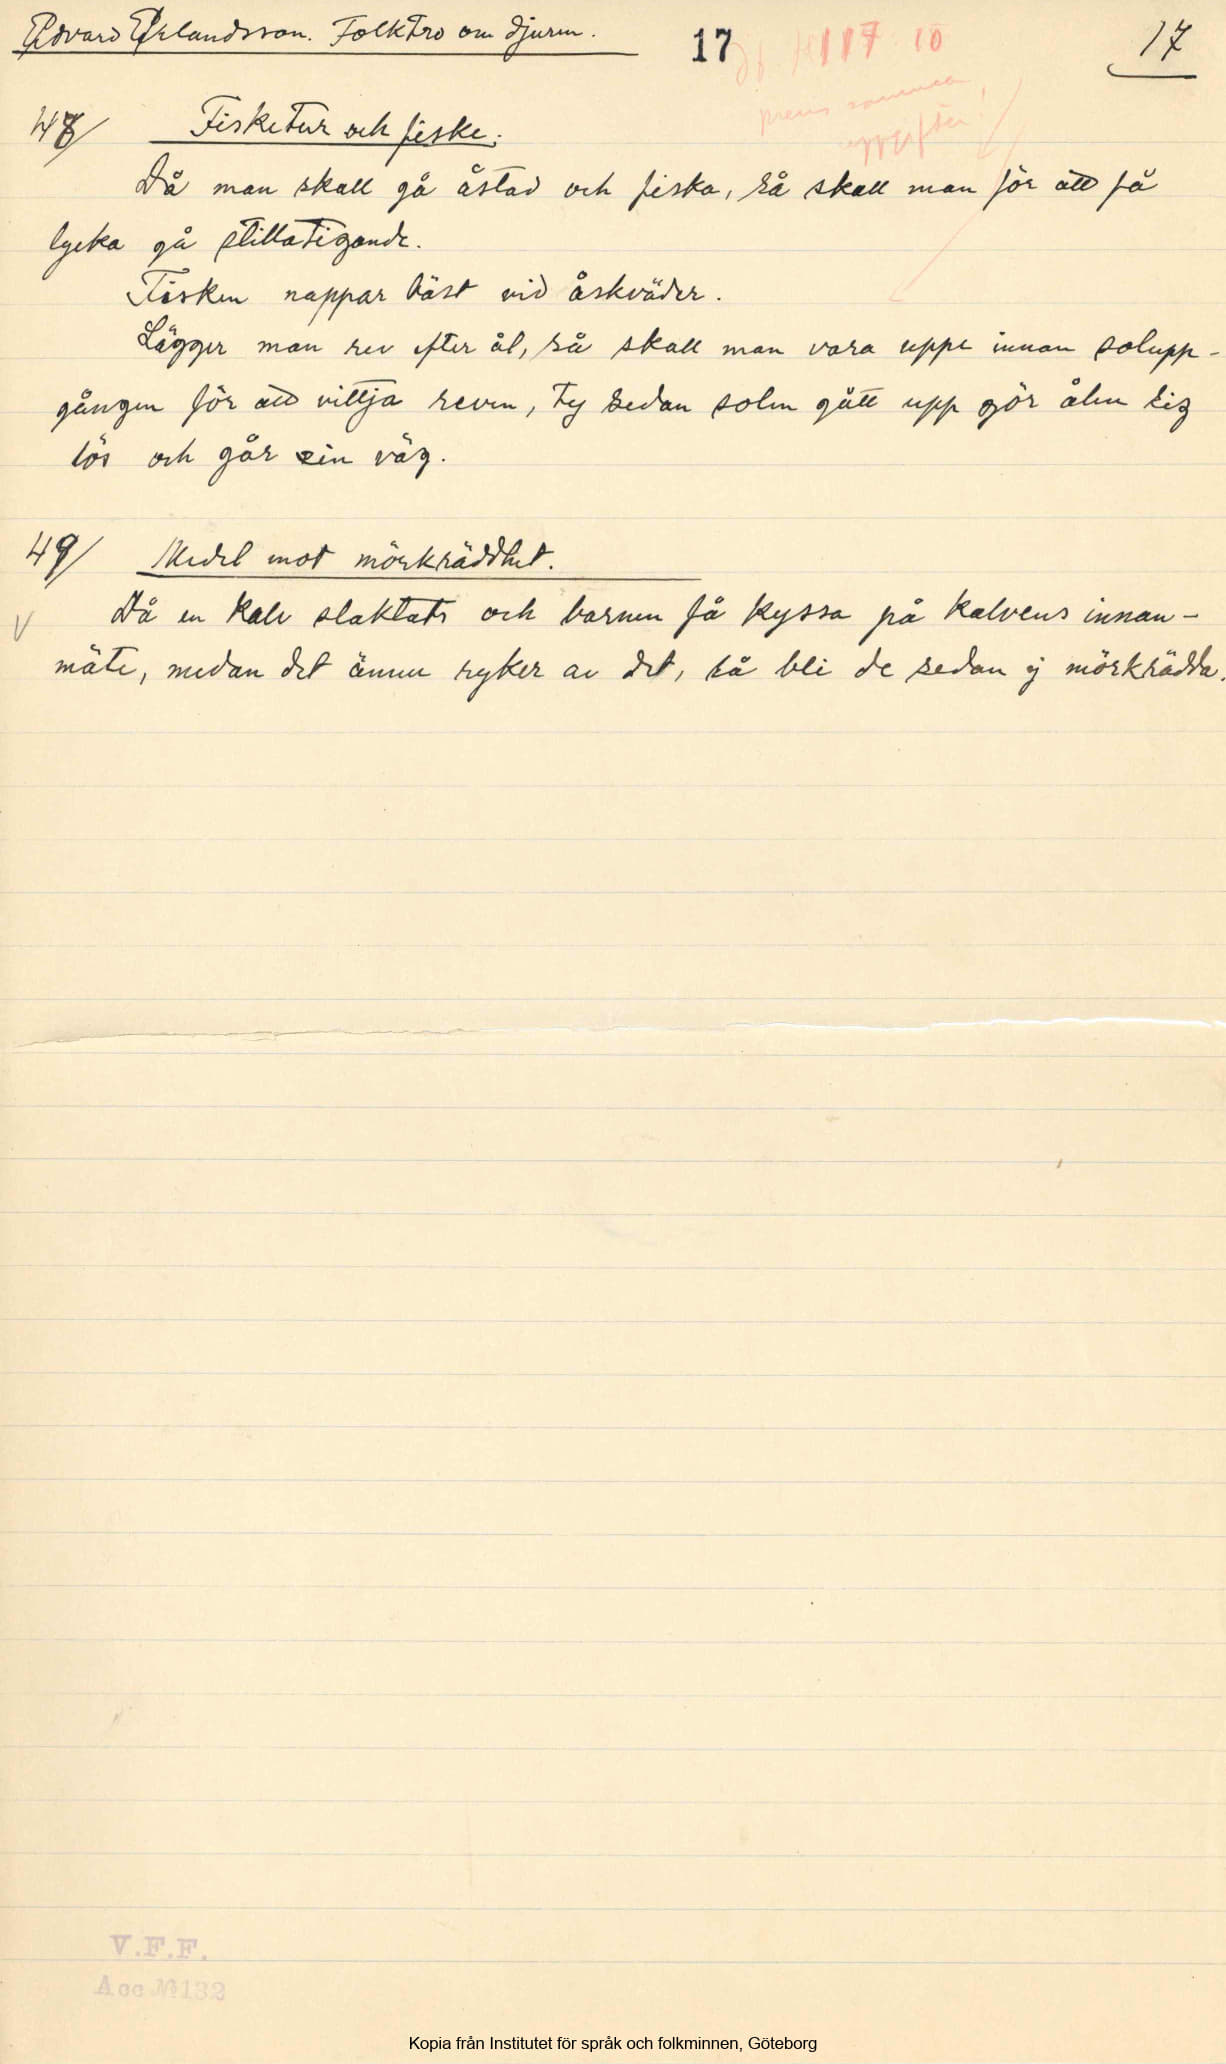 Edvard Erlandsson. Folktro om djuren.
17
17
117 : 10
samma
uppgifter!
48/ Fisketur och fiske.
Då man skall gå åstad och fiska, så skall man för att få
lycka gå stillatigande.
Fisken nappar bäst vid åskväder.
Lägger man rev efter ål, så skall man vara uppe innan solupp-
gången för att vittja reven, ty sedan solen gått upp gör ålen sig
lös och går sin väg.
49/ Medel mot mörkräddhet.
V Då en kalv slaktats och barnen få kyssa på kalvens innan-
mäte, medan det ännu ryker av det, så bli de sedan ej mörkrädda.
V.F.F.
Acc № 132
Kopia från Institutet för språk och folkminnen, Göteborg